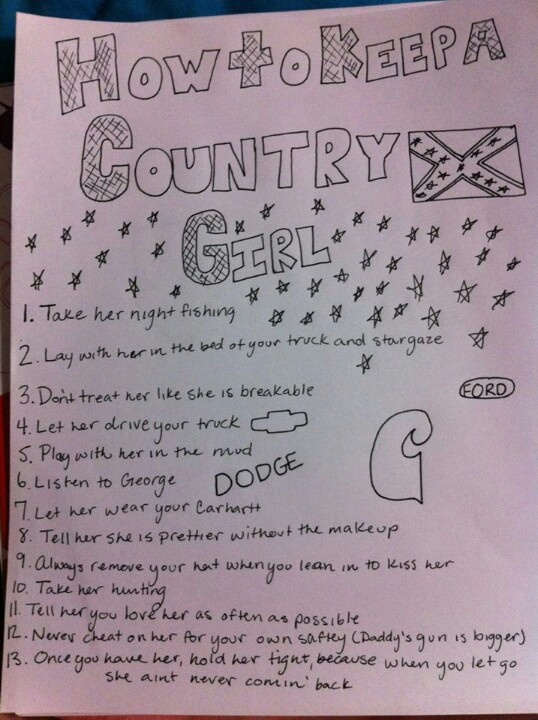 How to Keep A
Country
Girl
1. Take her night fishing
2. Lay with her in the bed of your truck and stargaze
3. Dont treat her like she is breakable
FORD
4. Let her drive your truck
5. Play with her in the mud
6. Listen to George
DODGE
7. Let her wear your Carhartt
8. Tell her she is prettier without the makeup
9. Always remove your hat when you lean in to kiss her
10. Take her hunting
11. Tell her you love her as often as possible
12. Never cheat on her for your own saftey (Daddy's gun is bigger)
13. Once you have her, hold her tight, because when you let go
she aint never comin' back